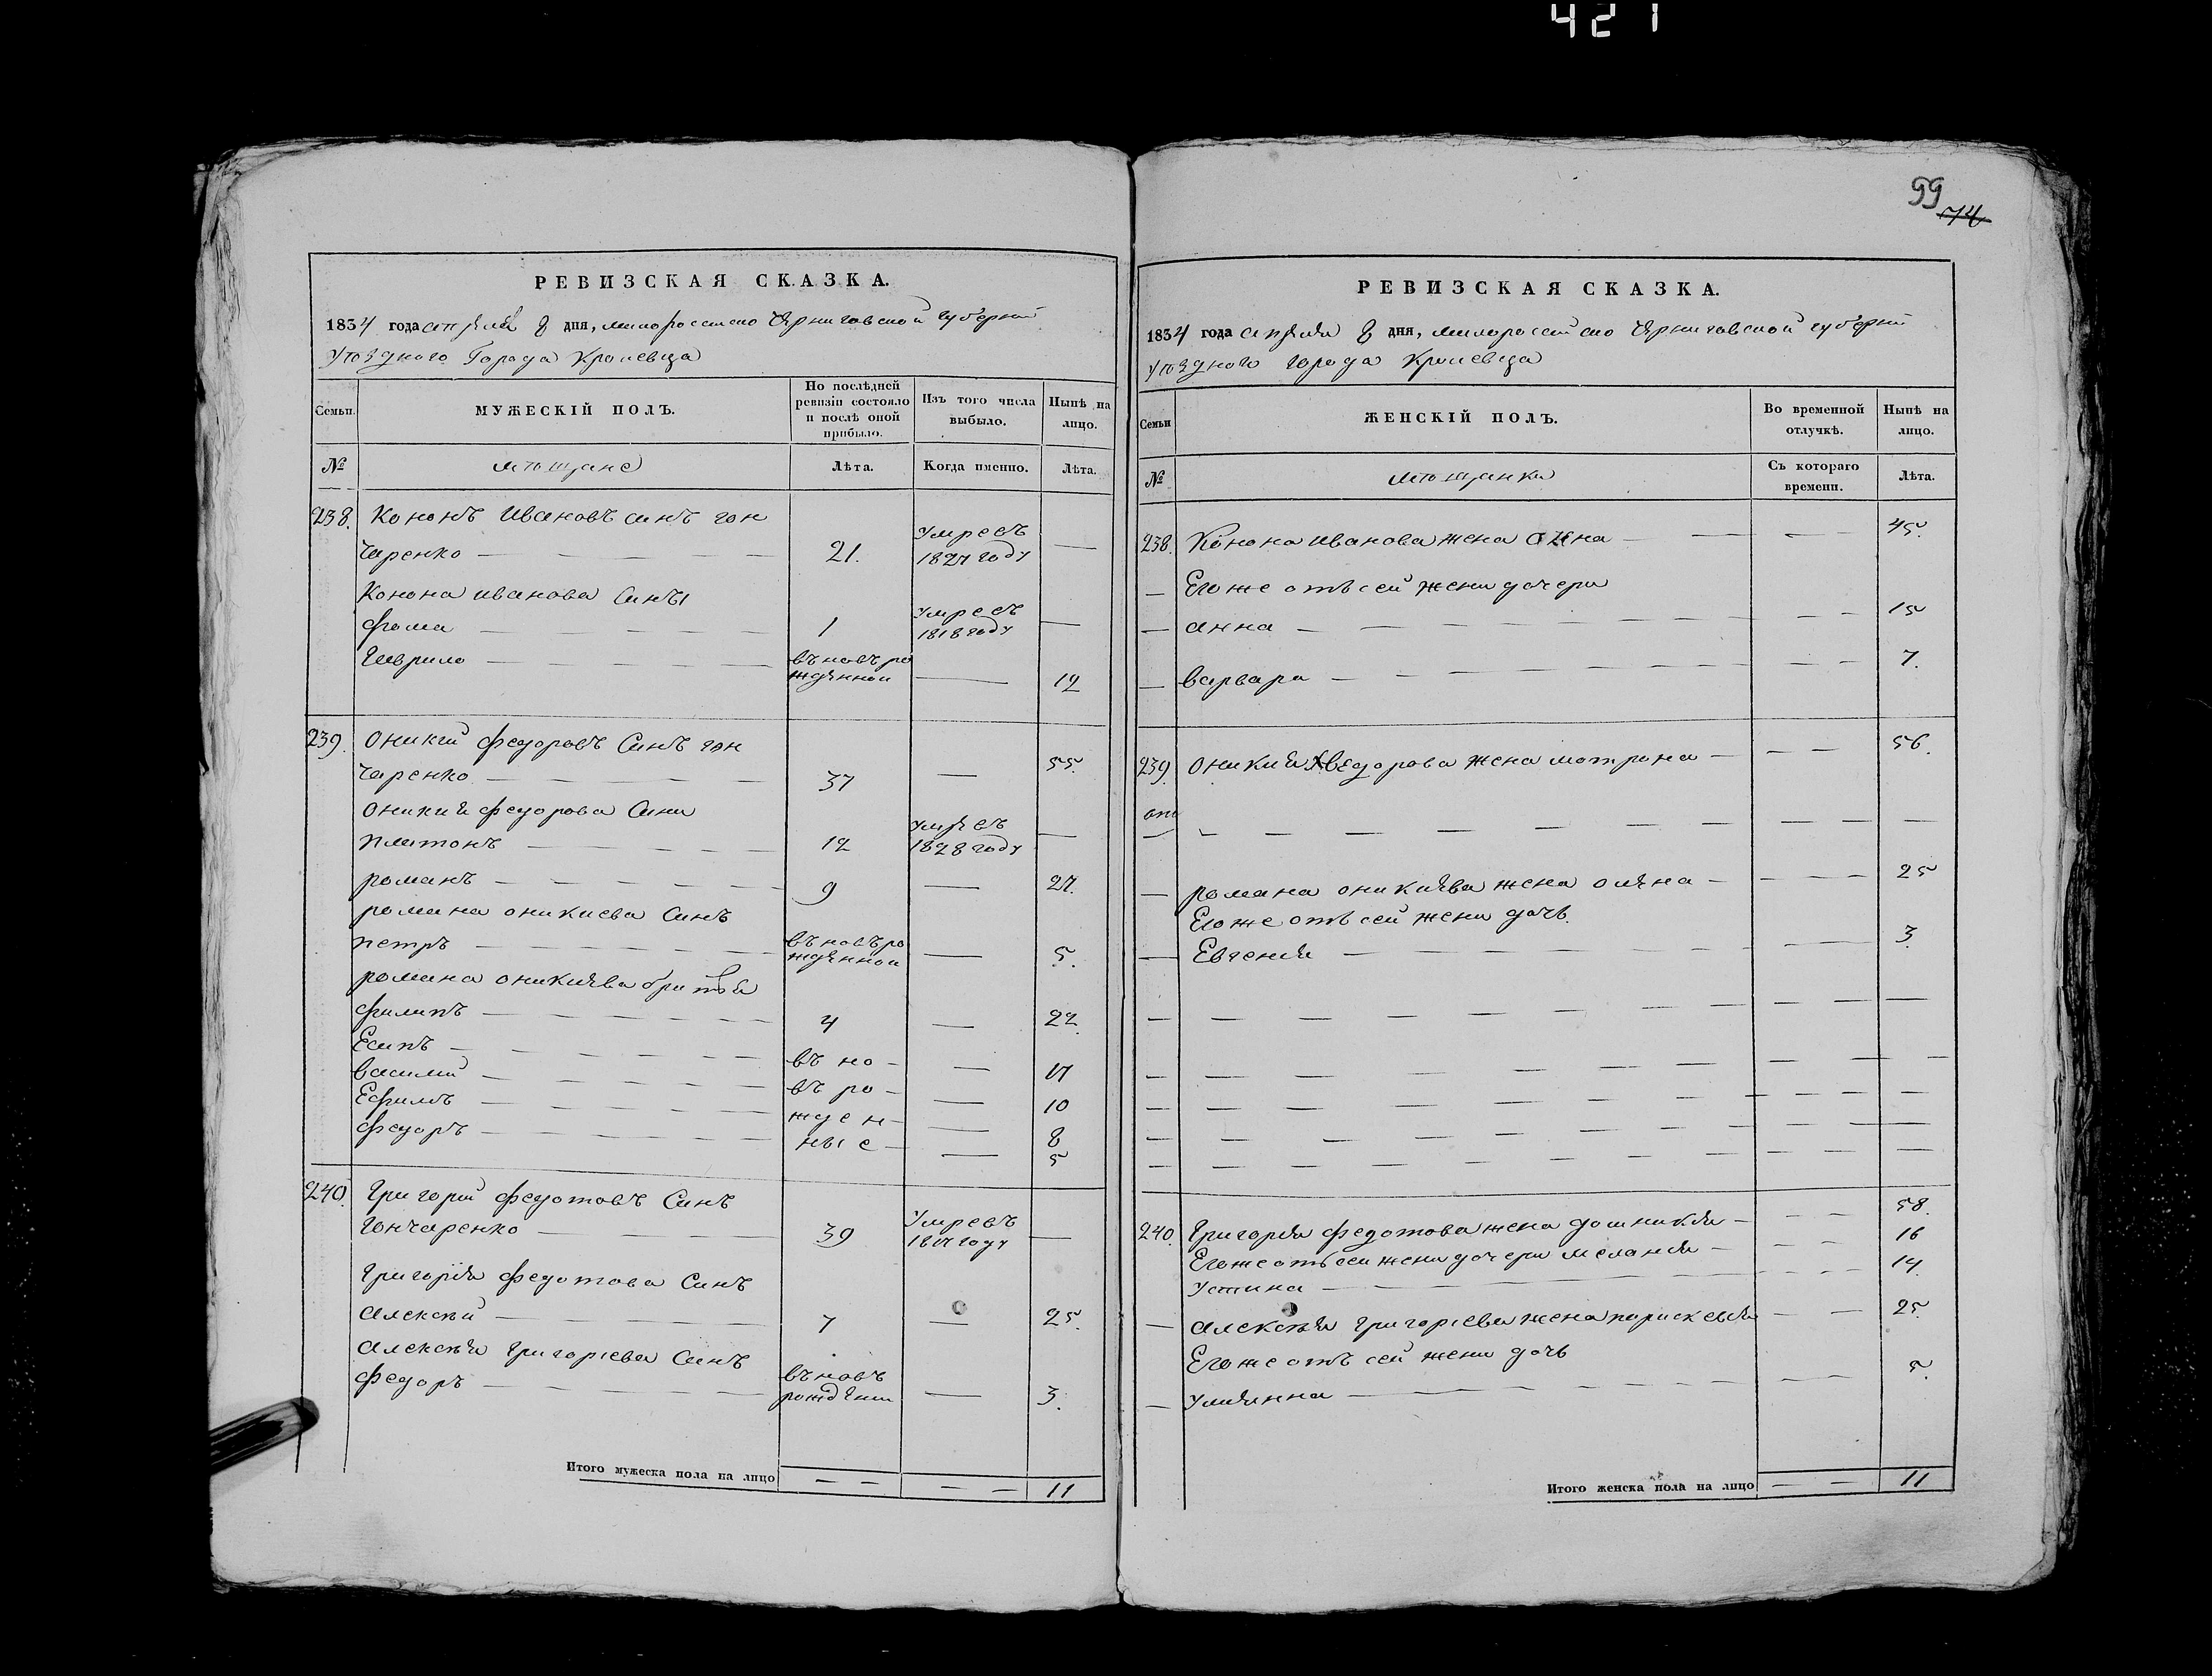 421
99
74
РЕВИЗСКАЯ СКАЗКА.
1834 года апреля 8 дня, малороссийско Черниговской губернии
уѣздного Города Кролевца
Семьи.
МУЖЕСКІЙ ПОЛЪ.
По послѣдней ревизіи состояло и послѣ оной прибыло.
Изъ того числа выбыло.
Нынѣ на лицо.
№
мѣщане
Лѣта.
Когда именно.
Лѣта.
238. Кононъ Ивановъ синъ гон
чаренко — — — — 21. Умревъ 1827 году —
Конона иванова Синъı
фома — — — — 1 Умревъ 1818 году —
Гаврило — — — — въновъ ро жденной — 12
239. Оникій федоровъ Синъ гон
чаренко — — — — 37 — 55.
Оникия федорова Сини
платонъ — — — — 12 умревъ 1828 году —
романъ — — — — 9 — 27.
романа оникиева Синъ
петръ — — — — въновъ ро жденной — 5.
романа оникиева братья
филипъ — — — — 4 — 22.
Есипъ — — — — въ но- — 17
василий — — — — въ ро- — 10
Ефимъ — — — — жден- — 8
федоръ — — — — ные- — 5
240. Григорій федотовъ Синъ
Гончаренко — — — 39 Умревъ 1817 году —
Григорія федотова Синъ
алексѣй — — — — 7 — 25.
алексѣя григоріева Синъ
федоръ — — — — въновъ рождени — 3.
Итого мужеска пола на лицо — — — — 11
РЕВИЗСКАЯ СКАЗКА.
1834 года апреля 8 дня, малороссийско Черниговской губерни
уѣздного города Кролевца
Семьи
ЖЕНСКІЙ ПОЛЪ.
Во временной отлучкѣ.
Нынѣ на лицо.
№
мѣщанки
Съ котораго времени.
Лѣта.
238. Конона иванова жена — — — — 45.
— Его же отъ сей жени дочери
— анна — — — — 15
— варвара — — — — 7.
239. Оникия федорова жена мотрона — — — 56.
— романа оникиева жена олена — — — — 25
Его же отъ сей жени дочь.
— Евгения — — — — 3
240. Григория федотова жена домникия — — — 58.
Его же отъ сеи жени дочери мелания — — — 16
Устина — — — — 14.
— алексѣя григоріева жена параскевия — — 25.
Его же отъ сей жени дочь
— Улиянна — — — — 5.
Итого женска пола на лицо — — 11